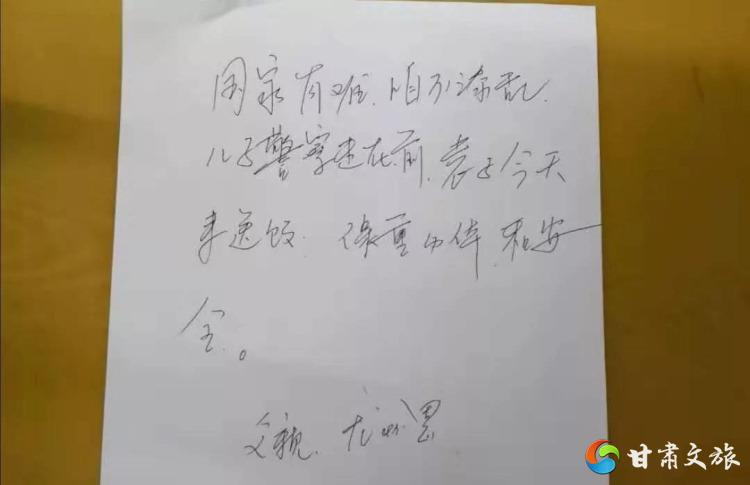 国家有难.咱不添乱.
儿子警察走在前.老子今天
来送饭.保重身体.和安
全。
父亲.
甘肃文旅